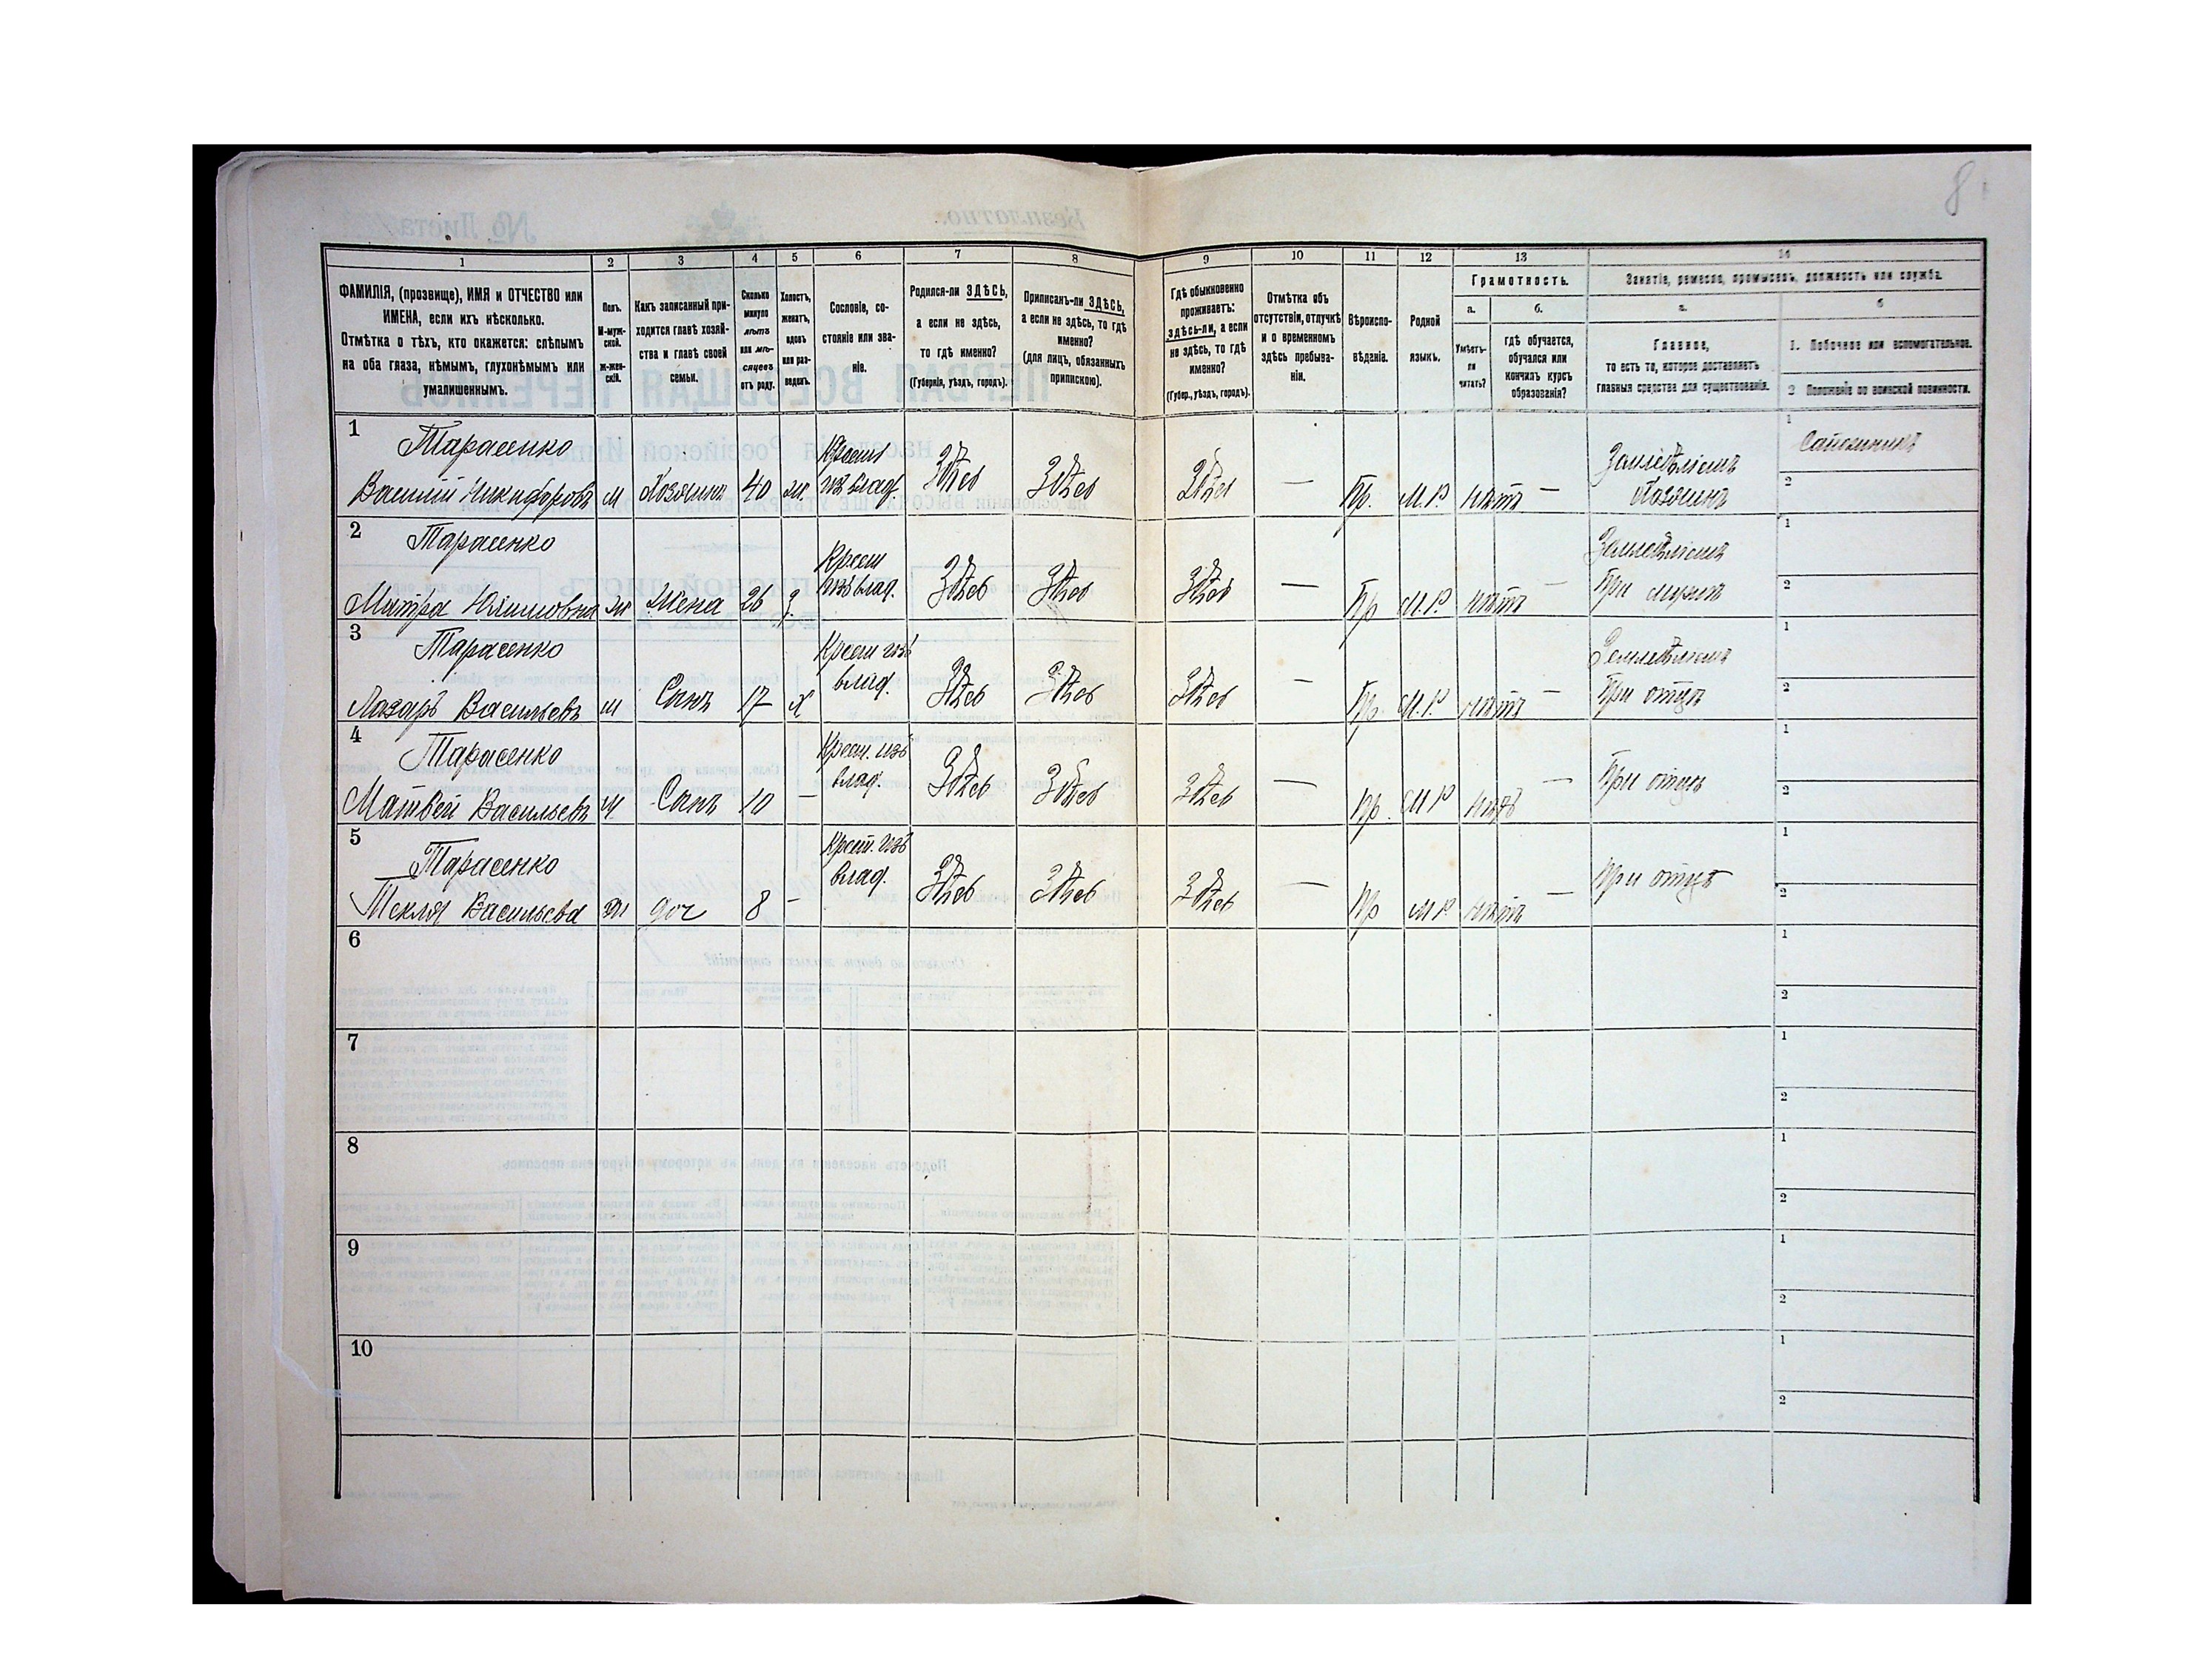 8
1 2 3 4 5 6 7 8 9 10 11 12 13 14
ФАМИЛІЯ, (прозвище), ИМЯ и ОТЧЕСТВО или
ИМЕНА, если ихъ нѣсколько.
Отмѣтка о тѣхъ, кто окажется: слѣпымъ
на оба глаза, нѣмымъ, глухонѣмымъ или
умалишеннымъ.
Полъ.
М-муж-
ской.
ж-жен-
скій.
Какъ записанный при-
ходится главѣ хозяй-
ства и главѣ своей
семьи.
Сколько
минуло
лѣтъ
или мѣ-
сяцевъ
отъ роду.
Холостъ,
женатъ,
вдовъ
или раз-
веденъ.
Сословіе, со-
стояніе или зва-
ніе.
Родился-ли ЗДѢСЬ,
а если не здѣсь,
то гдѣ именно?
(Губернія, уѣздъ, городъ).
Приписанъ-ли ЗДѢСЬ,
а если не здѣсь, то гдѣ
именно?
(для лицъ, обязанныхъ
припискою).
Гдѣ обыкновенно
проживаетъ:
здѣсь-ли, а если
не здѣсь, то гдѣ
именно?
(Губер., уѣздъ, городъ).
Отмѣтка объ
отсутствіи, отлучкѣ
и о временномъ
здѣсь пребыва-
ніи.
Вѣроиспо-
вѣданіе.
Родной
языкъ.
Грамотность.
а.
Умѣетъ-
ли
читать?
б.
гдѣ обучается,
обучался или
кончилъ курсъ
образованія?
Занятіе, ремесло, промыселъ, должность или служба.
а.
Главное,
то есть то, которое доставляетъ
главныя средства для существованія.
б
1. Побочное или вспомогательное.
2 Положеніе по воинской повинности.
1 Тарасенко
Василій Никифоровъ м Хозяинъ 40 ж. Крест изъ влад. Здѣсь Здѣсь Здѣсь — Пр. М.Р. нѣтъ —
Хозяинъ
1
2
2 Тарасенко
жена 26 Крест изъ влад. Здѣсь Здѣсь Здѣсь — Пр М.Р. нѣтъ —
1
2
3 Тарасенко
Лазарь Васильевъ м Сынъ 17 х Крест изъ влад. Здѣсь Здѣсь Здѣсь — Пр. М.Р. нѣтъ —
При отцѣ
1
2
4 Тарасенко
Матвѣй Васильевъ м Сынъ 10 — Крест. изъ влад. Здѣсь Здѣсь Здѣсь — Пр. М Р нѣтъ —
При отцѣ
1
2
5 Тарасенко
Текля Васильева ж доч 8 — Крест. изъ влад. Здѣсь Здѣсь Здѣсь — Пр М Р нѣтъ —
При отцѣ
1
2
6
1
2
7
1
2
8
1
2
9
1
2
10
1
2